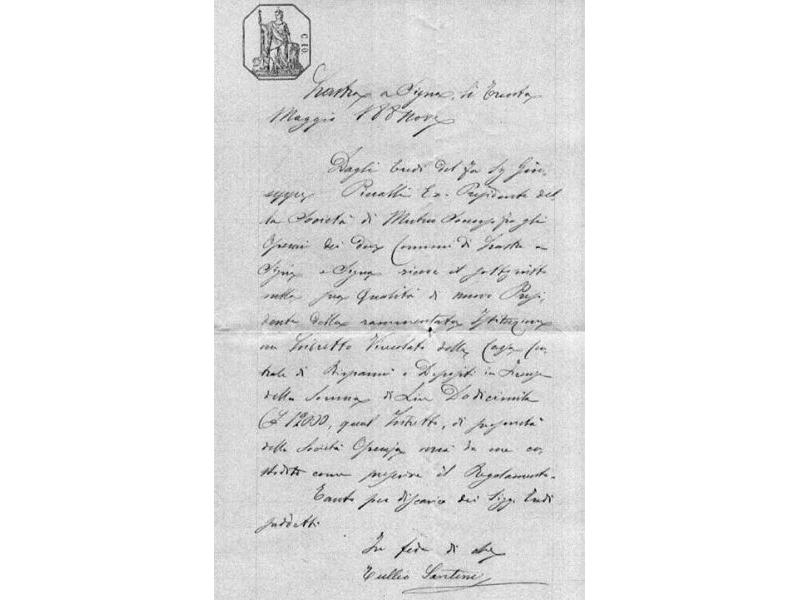 C. 10.
Lastra a Signa, li Trenta
Maggio 188nove
Dagli Eredi del fu Sig Giu-
seppe Ex. Presidente del
la Società di Mutuo Soccorso fra gli
Operai dei due Comuni di Lastra a
Signa e Signa riceve il sottoscritto
nella sua Qualità di nuovo Presi
dente della rammentata Istituzione
un Libretto Vincolato della Cassa Cen
trale di Risparmi e Depositi in Firenze
della Somma di Lire Dodicimila
(£ 12000, qual Libretto, di proprietà
della Società Operaja verrà da me cu
stodito come prescrive il Regolamento.
Tanto per discarico dei Sigg. Eredi
suddetti
In fede di che
Tullio Santini